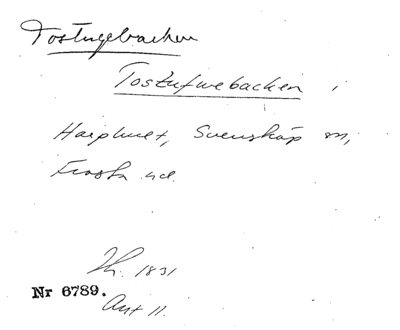 Tostugebacken
Tostufwebacken i
Harphult, Svensköp sn,
Frosta hd.
Th. 1831
Nr 6789.
Ant 11.